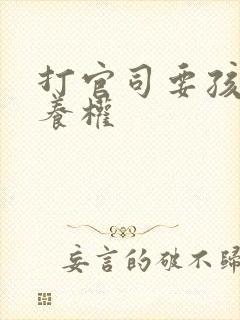 打官司要孩
養權
妄言的破不歸